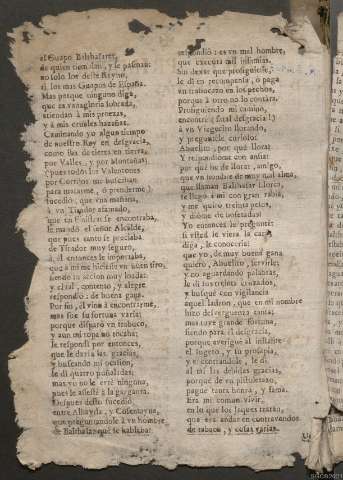 el Guapo Balthasaret,
de quien tiemblan, y se pasman:
no solo los deste Reyno,
si los mas Guapos de España.
Mas porque ninguno diga,
que es vanagloria sobrada,
atiendan à mis proezas,
y à mis crueles hazañas.
Caminando yo algun tiempo
de nuestro Rey en desgracia,
como iba de tierra en tierra,
por Valles, y por Montañas;
(pues todos los Valentones
por Cortijos me buscaban
para matarme, ò prenderme)
sucediò, que una mañana,
à un Tirador afamado,
que en Eniste se encontraba,
le mandò el señor Alcalde,
que pues tanto se preciaba
de Tirador muy seguro,
à èl entonces le importaba,
que à mi me hiciesse un buen tiro,
siendo la accion muy loada:
y el tal, contento, y alegre
respondiò: de buena gana.
Por fin, èl vino à encontrarme,
mas fue su fortuna varia;
porque disparò un trabuco,
y aun mi ropa no tocaba:
le respondi por entonces,
que le daria las gracias,
y buscando mi ocasion,
le di quatro puñaladas;
mas yo no le errè ninguna,
pues le assestè à la garganta.
Despues desto sucediò,
entre Albayda, y Cosentayna,
que preguntandole à un hombre
de Balthasar què se hablaba?
respondiò: es un mal hombre,
que executa mil infamias.
Sin dexar que prosiguiesse,
le di en recompensa, ò paga
un trabucazo en los pechos,
porque à otro no lo contàra.
Prosiguiendo mi camino,
encontrè (fatal desgracia!)
à un Viegecito llorando,
y preguntèle curioso:
Abuelito, por què llora?
Y respondiòme con ansia:
por què he de llorar, amigo,
que un hombre de muy mal alma,
que llaman Balthasar Llorca,
se llegò à mi con gran rabia,
y me quitò treinta pesos,
y diòme de bofetadas!
Yo entonces le preguntè:
si usted le viera la cara,
diga, le conoceria?
que yo, de muy buena gana
quiero, Abuelito, servirle;
y no aguardando palabras,
le di sus treinta cruzados,
y busquè con vigilancia
aquel ladron, que en mi nombre
hizo desverguenza tanta;
mas tuve grande fortuna,
siendo para èl desgracia,
porque averiguè al instante
el sugeto, y su prosapia,
y encontrandole, le di
al tal las debidas gracias,
porque de un pistoletazo,
pague tanta honra, y fama.
Era mi comun vivir,
en lo que los Jaques tratan,
que era andar en contravandos
de tabaco, y cosas varias.